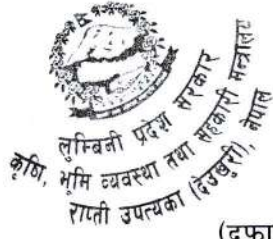 लुम्बिनी प्रदेश सरकार
कृषि, भूमि व्यवस्था तथा सहकारी मन्त्रालय
राप्ती उपत्यका (देउखुरी), नेपाल
(दफा